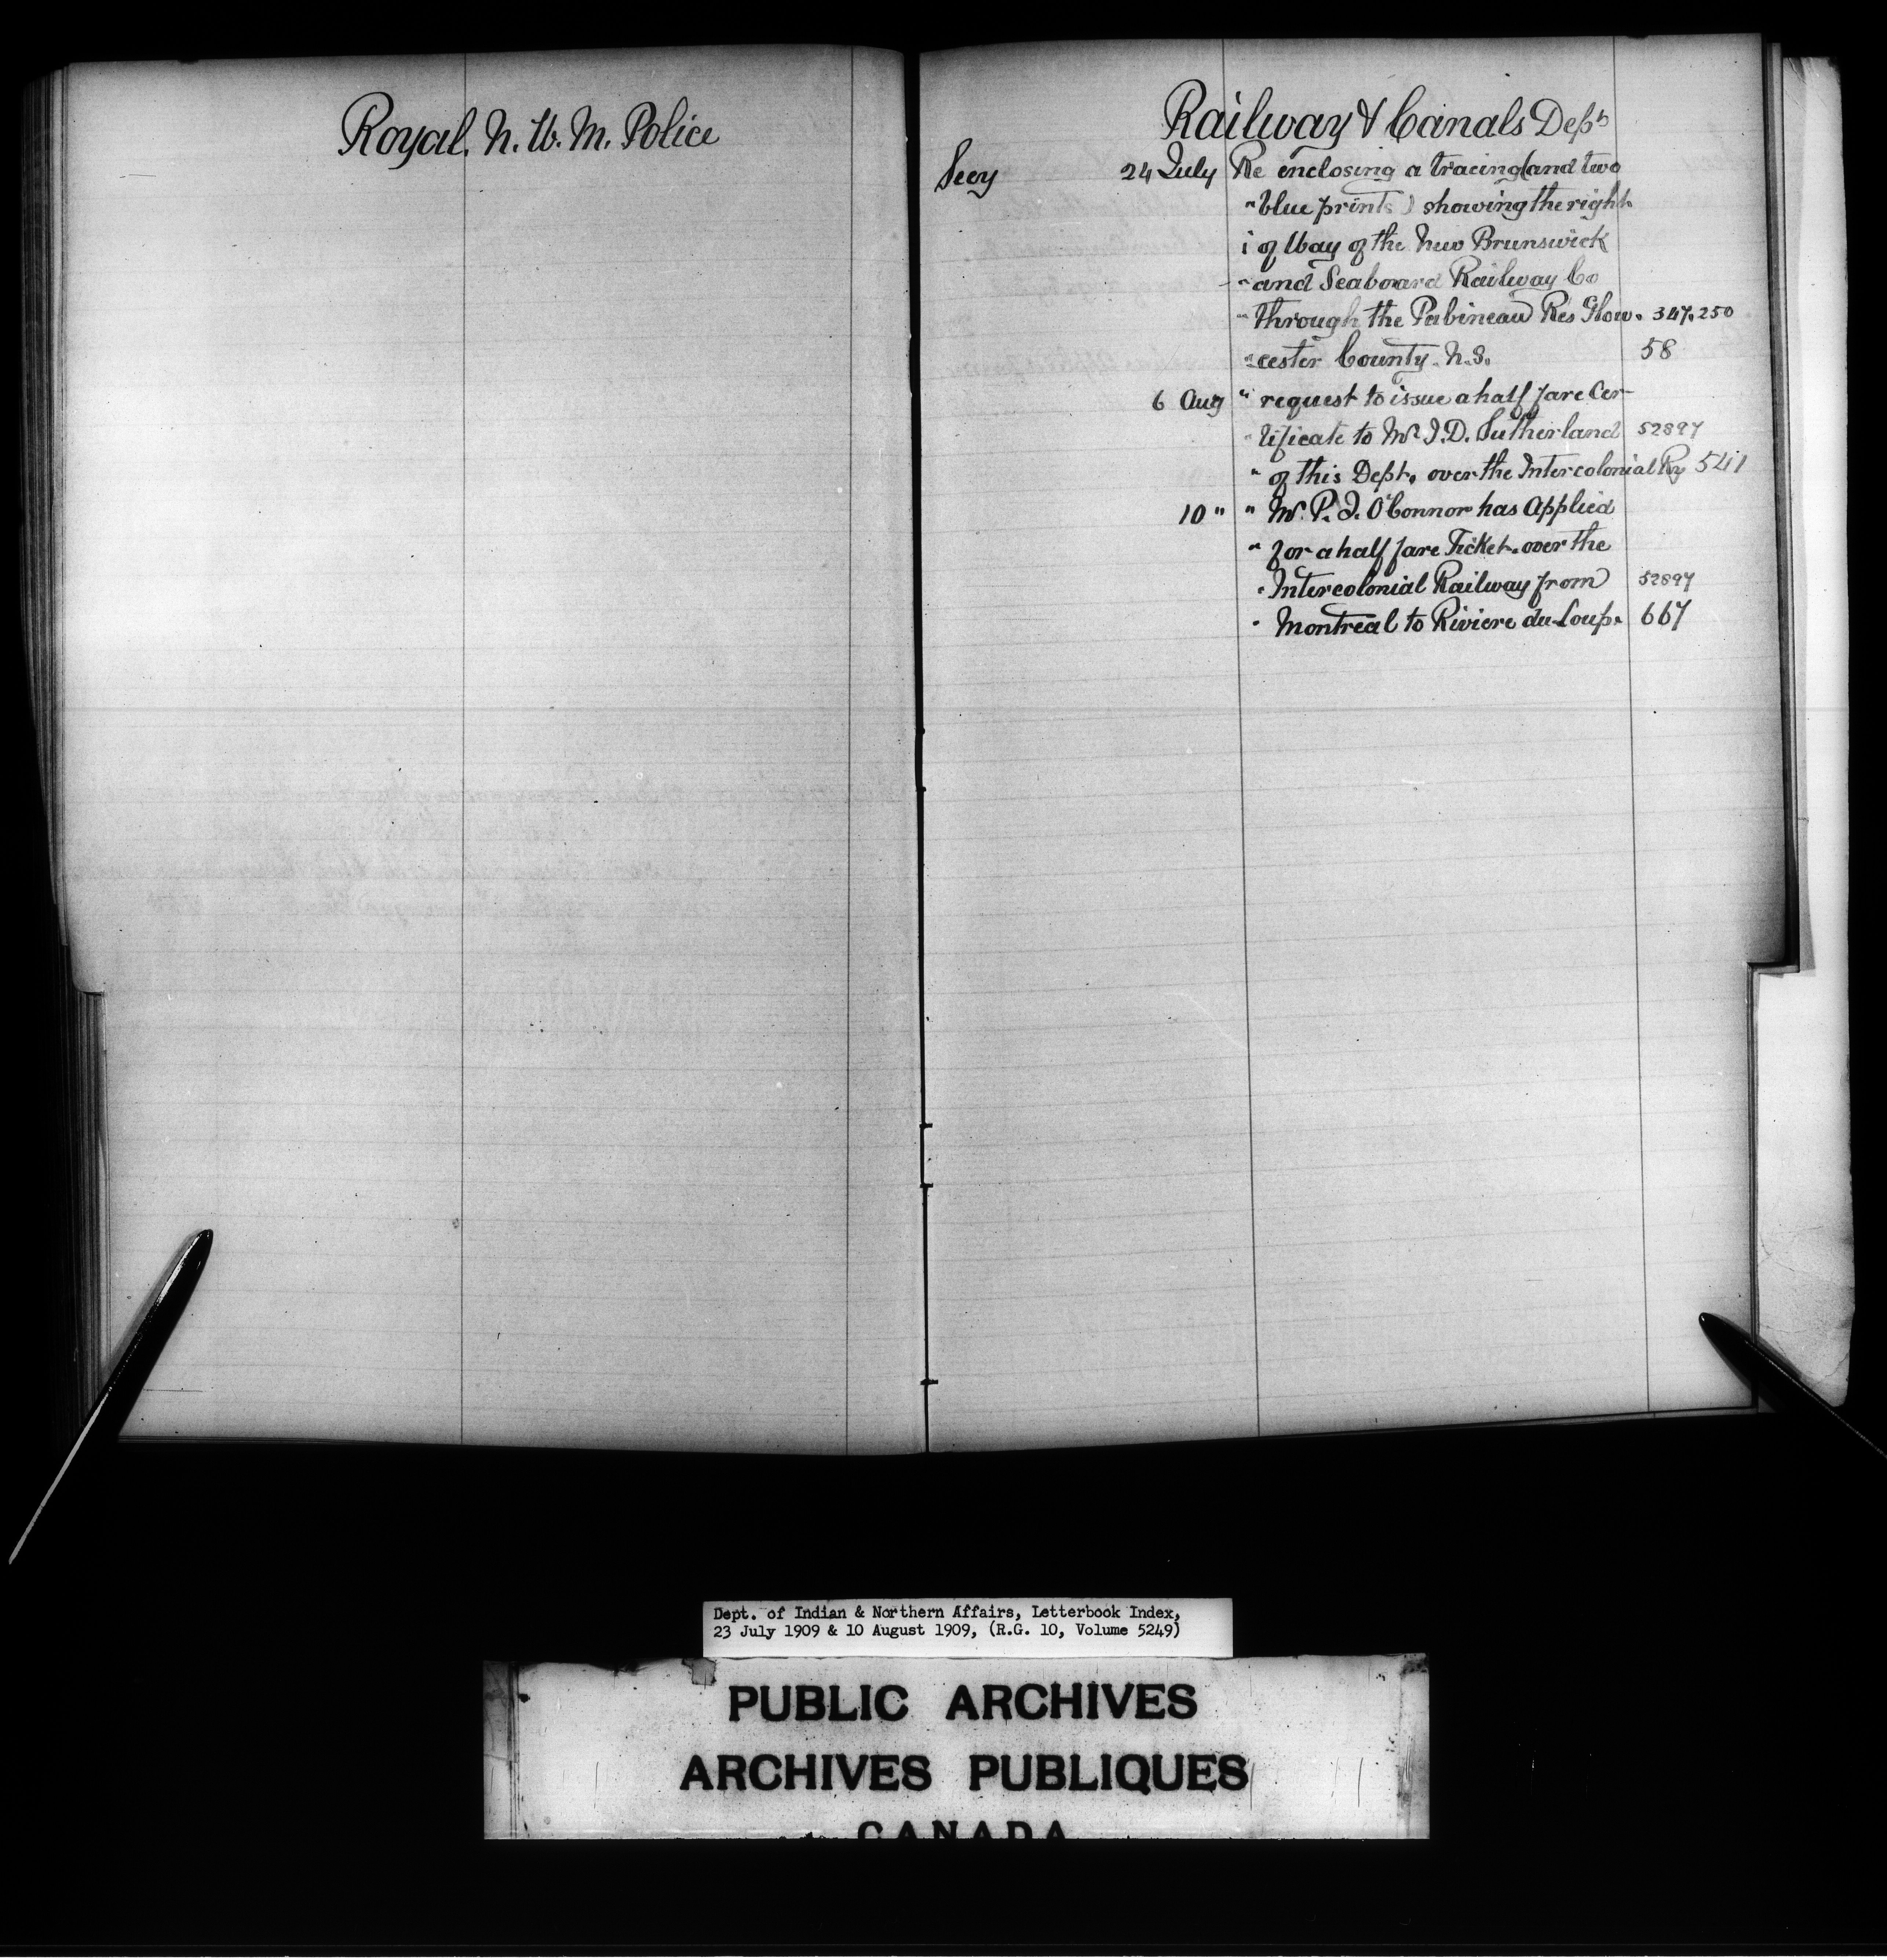 Royal. N. W. M. Police
Railway & Canals Dept
Secy 24 July Re enclosing a tracing (and two
" blue prints) showing the right
of Way of the New Brunswick
" and Seaboard Railway Co
" through the Pabineau Res Glou. 347.250
" cester County. N.S. 58
6 Aug " request to issue a half fare Cer-
" tificate to Mr J.D. Sutherland 52897
" of this Dept. over the Intercolonial Ry 541
10 " " Mr. P. J. O'Connor has Applied
" for a half fare Ticket. over the
" Intercolonial Railway from 52897
" Montreal to Riviere du-Loup. 667
Dept. of Indian & Northern Affairs, Letterbook Index,
23 July 1909 & 10 August 1909, (R.G. 10, Volume 5249)
PUBLIC ARCHIVES
ARCHIVES PUBLIQUES
CANADA